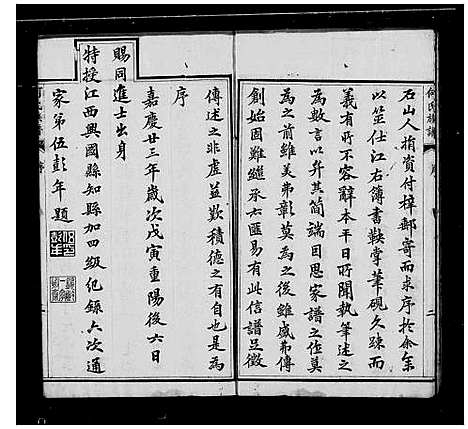 石山人捐資付梓郵寄而求序於余余
以筮仕江右簿書鞅掌筆硯久疎而
義有所不容辭本平日所聞執筆述之
為數言以弁其簡端因思家譜之作莫
為之前雖美弗彰莫為之後雖盛弗傳
創始固難繼承亦匪易有此信譜足徵
傳述之非虛益歎積德之有自也是為
序
嘉慶廿三年歲次戊寅重陽後六日
賜同進士出身
特授江西興國縣知縣加四級紀錄六次通
家第伍彭年題